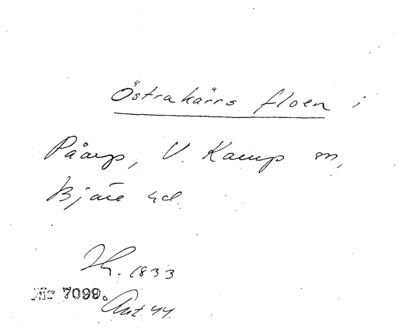 Östrakärrs floen i
Påarp, V. Karup sn,
Bjäre hd.
1833
Nr 7099.
Ant 44.